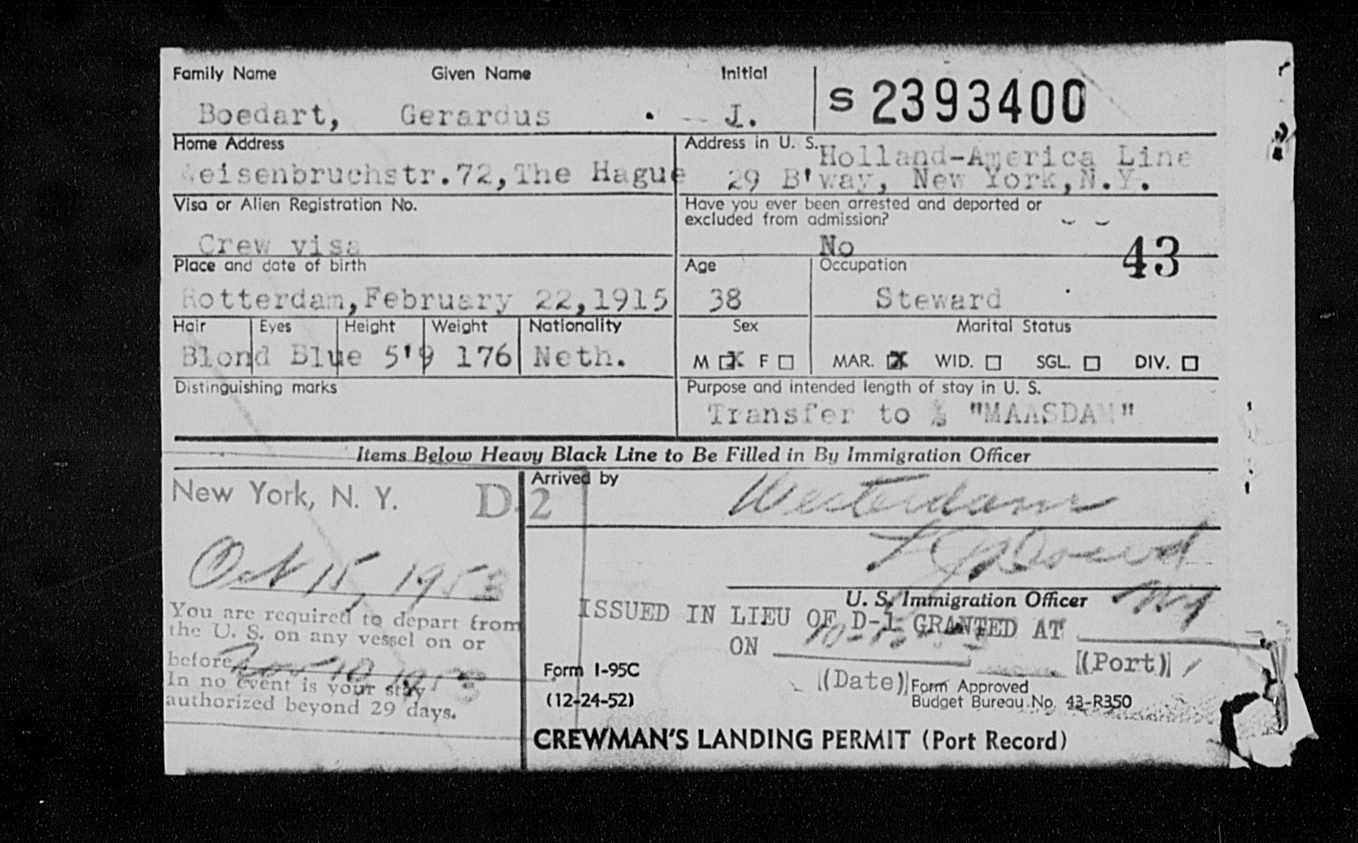 Family Name Given Name Initial
Boedart, Gerardus J. S 2393400
Home Address
Weisenbruchstr.72, The Hague
Address in U. S. Holland-America Line
29 B'way, New York, N.Y.
Visa or Alien Registration No.
Crew visa
Have you ever been arrested and deported or
excluded from admission?
No
43
Place and date of birth
Rotterdam, February 22, 1915
Age
38
Occupation
Steward
Hair Eyes Height Weight Nationality
Blond Blue 5'9 176 Neth.
Sex
M X F
Marital Status
MAR. X WID. SGL. DIV.
Distinguishing marks
Purpose and intended length of stay in U. S.
Transfer to "MAASDAM"
Items Below Heavy Black Line to Be Filled in By Immigration Officer
New York, N. Y. D-2
Oct 15, 1953
You are required to depart from
the U. S. on any vessel on or
before Nov 10 1953
In no event is your stay
authorized beyond 29 days.
Arrived by
Westerdam
U. S. Immigration Officer
ISSUED IN LIEU OF D-1 GRANTED AT NY
ON
(Date) (Port)
Form I-95C
(12-24-52)
Form Approved
Budget Bureau No. 43-R350
CREWMAN'S LANDING PERMIT (Port Record)